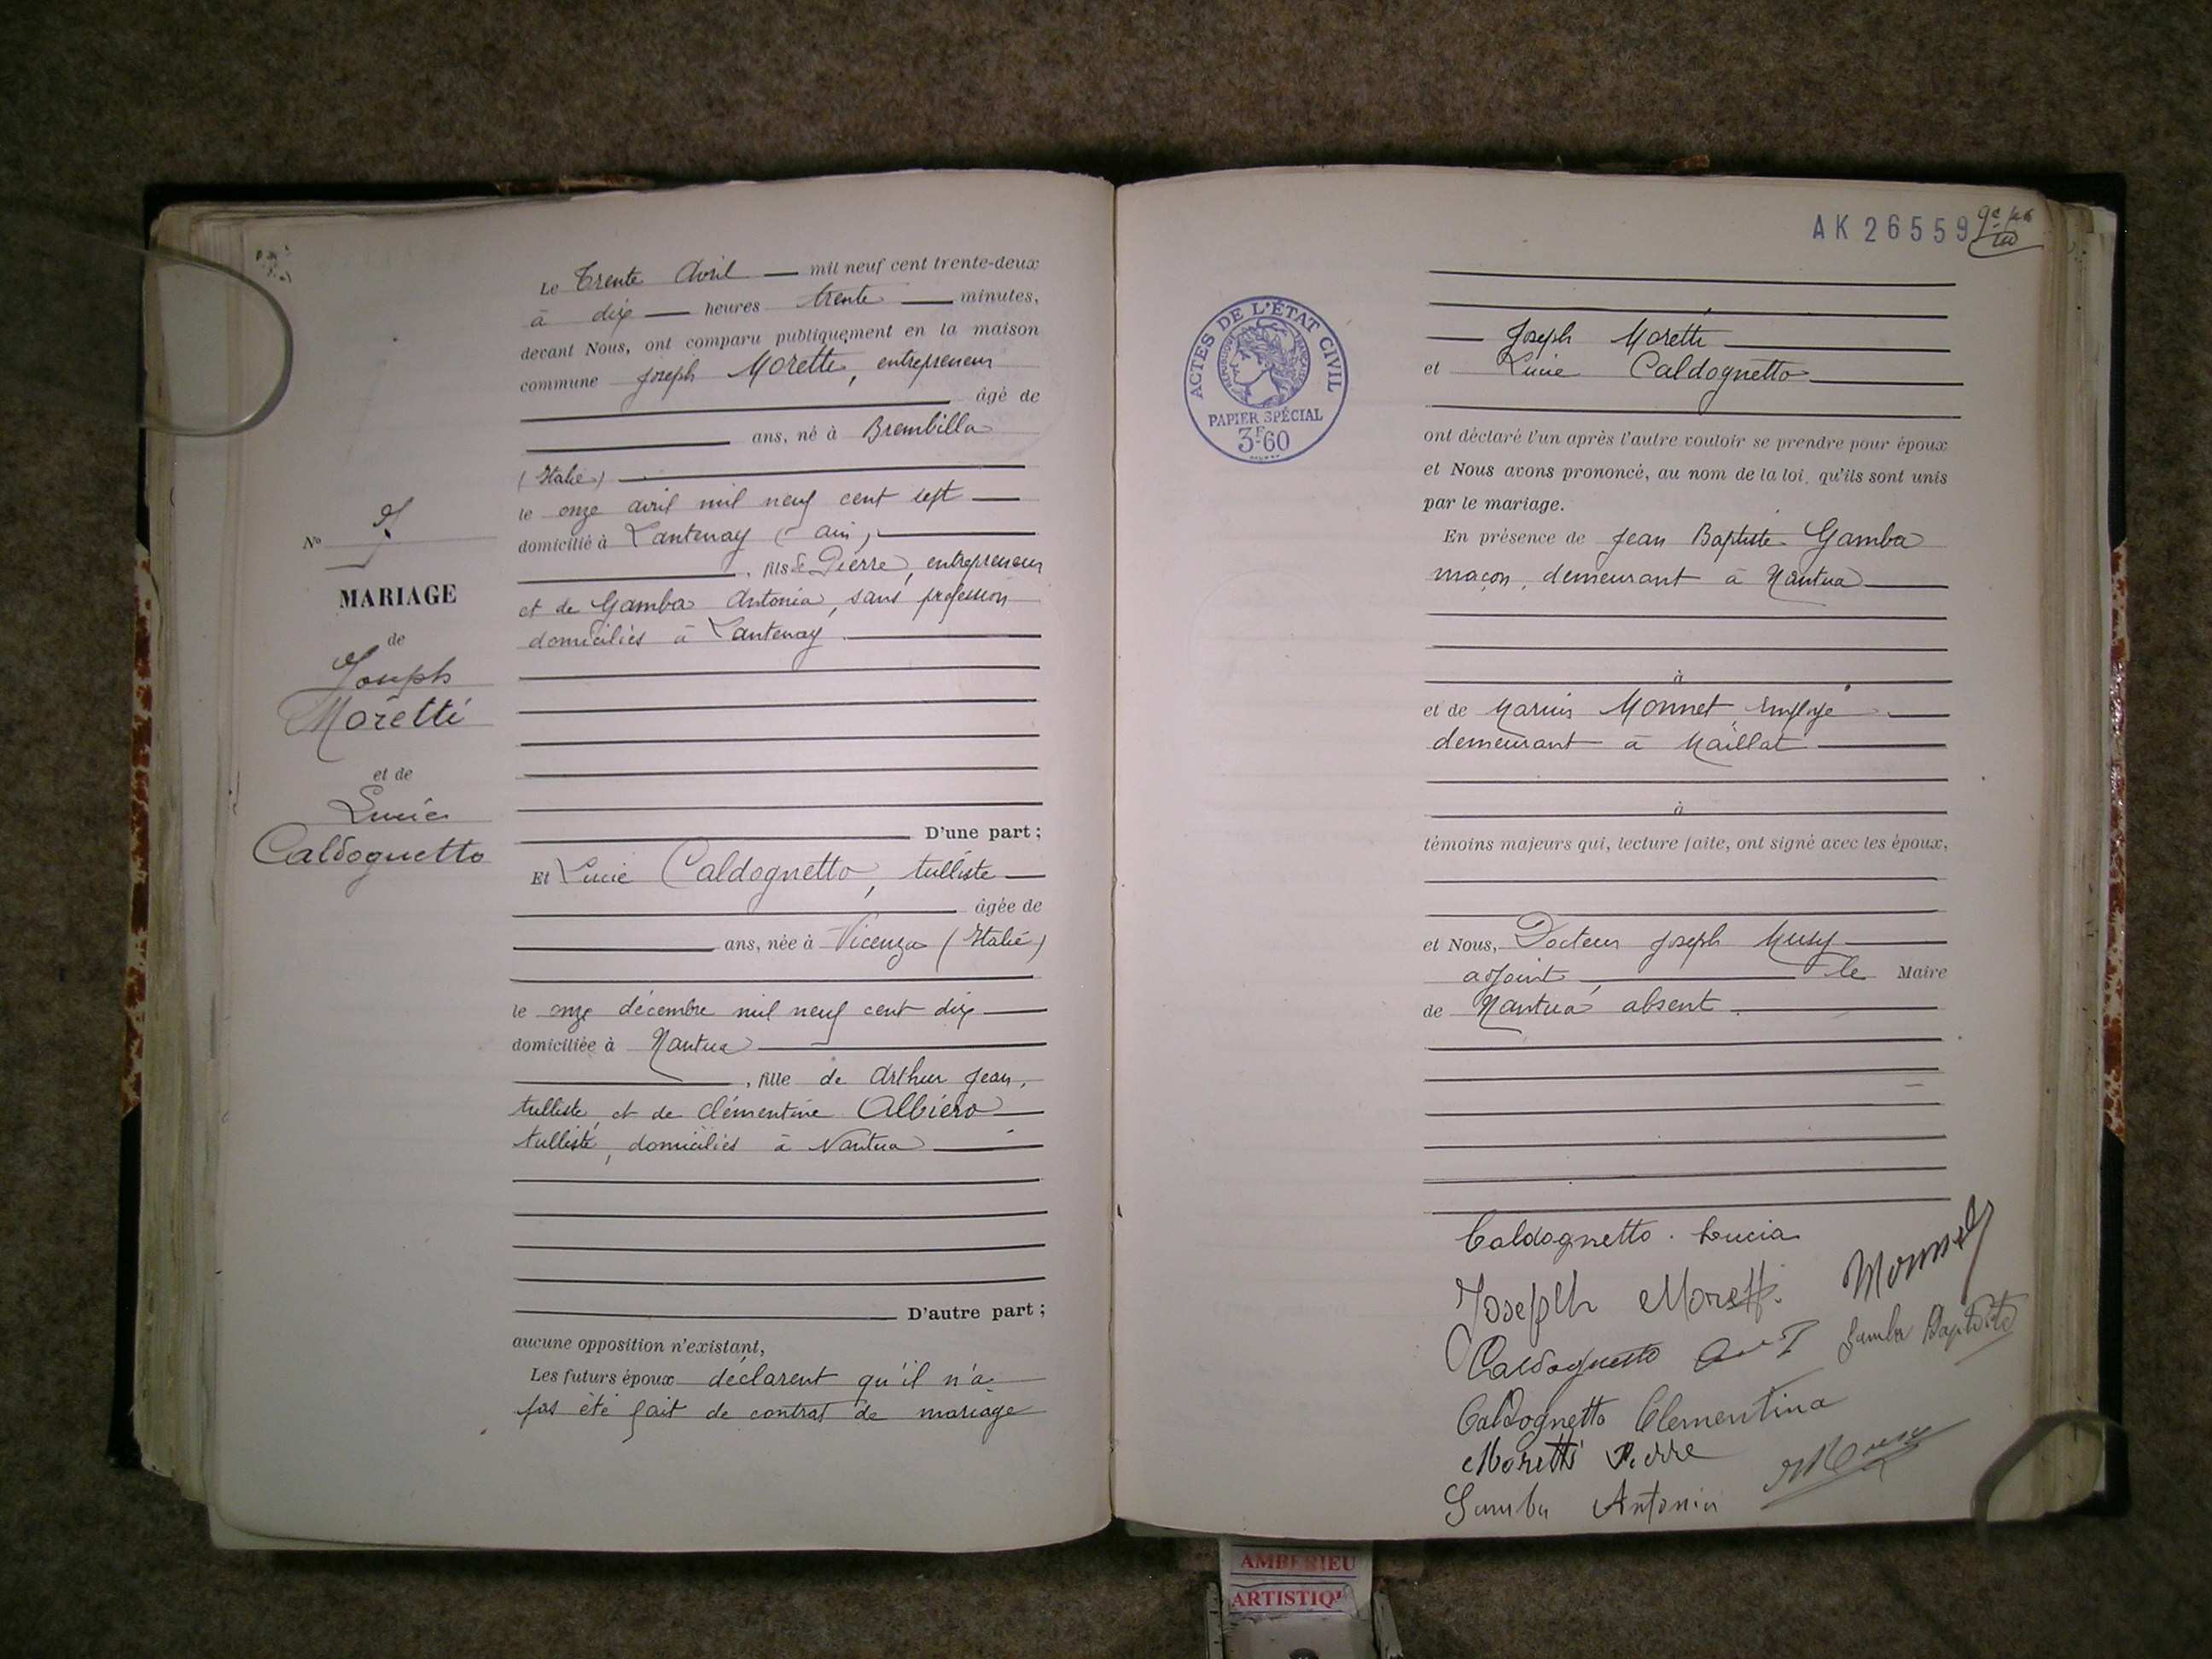 Le Trente Avril mil neuf cent trente-deux
à dix heures trente minutes,
devant Nous, ont comparu publiquement en la maison
commune Joseph Moretti, entrepreneur
âgé de
ans, né à Brembilla
(Italie)
le onze avril mil neuf cent sept
domicilié à Lantenay (ain)
, fils de Pierre, entrepreneur
et de Gamba Antonia, sans profession
domiciliés à Lantenay
D'une part ;
Et Lucie Caldognetto, tulliste
âgée de
ans, née à Vicenza (Italie)
le onze décembre mil neuf cent dix
domiciliée à Nantua
, fille de Arthur Jean,
tulliste, et de Clémentine Albiero
tulliste, domiciliés à Nantua
D'autre part ;
aucune opposition n'existant,
Les futurs époux déclarent qu'il n'a
pas été fait de contrat de mariage
No
MARIAGE
de
Joseph
Moretti
et de
Lucie
Caldognetto
AK 26559
ACTES DE L'ÉTAT CIVIL
RÉPUBLIQUE FRANÇAISE
PAPIER SPÉCIAL
3F60
Joseph Moretti
et Lucie Caldognetto
ont déclaré l'un après l'autre vouloir se prendre pour époux
et Nous avons prononcé, au nom de la loi, qu'ils sont unis
par le mariage.
En présence de Jean Baptiste Gamba
maçon, demeurant à Nantua
à
et de Marius Monnet, Employé
demeurant à Maillat
à
témoins majeurs qui, lecture faite, ont signé avec les époux,
et Nous, Docteur Joseph Musy
adjoint, le Maire
de Nantua absent
Caldognetto. Lucia
Monnet
Joseph Moretti
Caldognetto
Gamba Baptiste
Caldognetto Clementina
Moretti Pierre
Gamba Antonia
AMBERIEU
ARTISTIQU